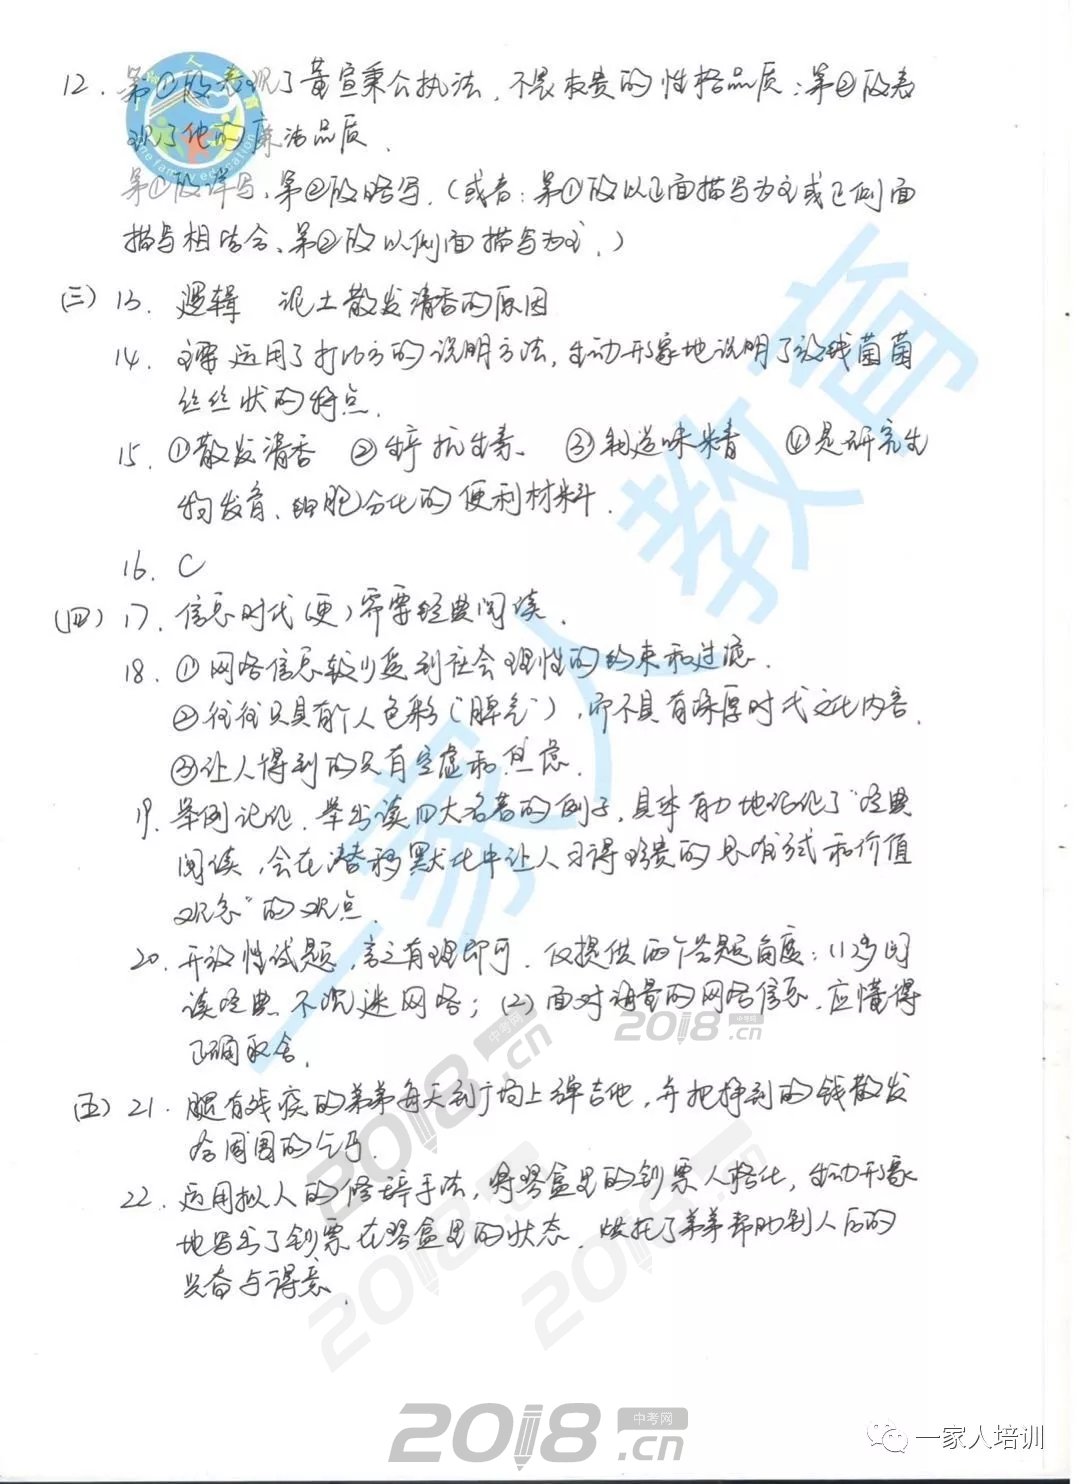 12. 第①段表现了董宣秉公执法、不畏权贵的性格品质；第②段表
现了他的廉洁品质.
第①段详写、第②段略写.（或者：第①段以正面描写为主或正侧面
描写相结合、第②段以侧面描写为主.）
(三) 13. 逻辑 泥土散发清香的原因
14. 主要运用了打比方的说明方法，生动形象地说明了放线菌菌
丝丝状的特点.
15. ①散发清香 ②生产抗生素、 ③制造味精 ④是研究生
物发育、细胞分化的便利材料.
16. C
(四) 17. 信息时代(更)需要经典阅读.
18. ①网络信息较少受到社会理性的约束和过滤.
②往往只具有个人色彩("脾气")，而不具有深厚时代文化内容.
③让人得到的只有空虚和焦虑.
19. 举例论证. 举出读四大名著的例子，具体有力地论证了"经典
阅读，会在潜移默化中让人习得珍贵的思维方式和价值
观念"的观点.
20. 开放性试题，言之有理即可. 仅提供两个答题角度：(1)多阅
读经典 不沉迷网络；(2)面对海量的网络信息，应懂得
正确取舍.
(五) 21. 腿有残疾的弟弟每天到广场上弹吉他，并把挣到的钱散发
给周围的乞丐.
22. 运用拟人的修辞手法，将琴盒里的钞票人格化，生动形象
地写出了钞票在琴盒里的状态. 烘托了弟弟帮助别人后的
兴奋与得意.
一家人教育
the family education
中考网
2018.cn
一家人培训